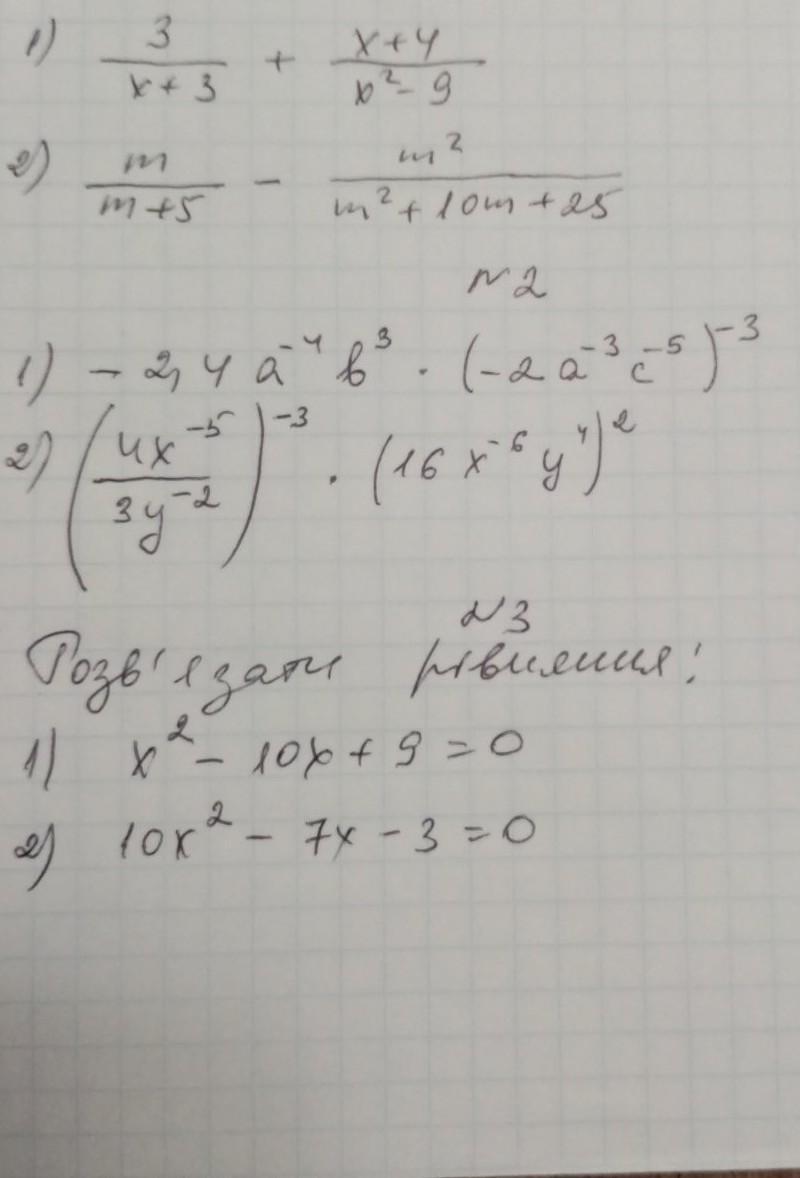 1) 3/(x+3) + (x+4)/(x²-9)
2) m/(m+5) - m²/(m²+10m+25)
N2
1) -2,4a⁻⁴b³ · (-2a⁻³c⁻⁵)⁻³
2) (4x⁻⁵/3y⁻²)⁻³ · (16x⁻⁶y⁴)²
N3
Розв'язати рівняння:
1) x² - 10x + 9 = 0
2) 10x² - 7x - 3 = 0